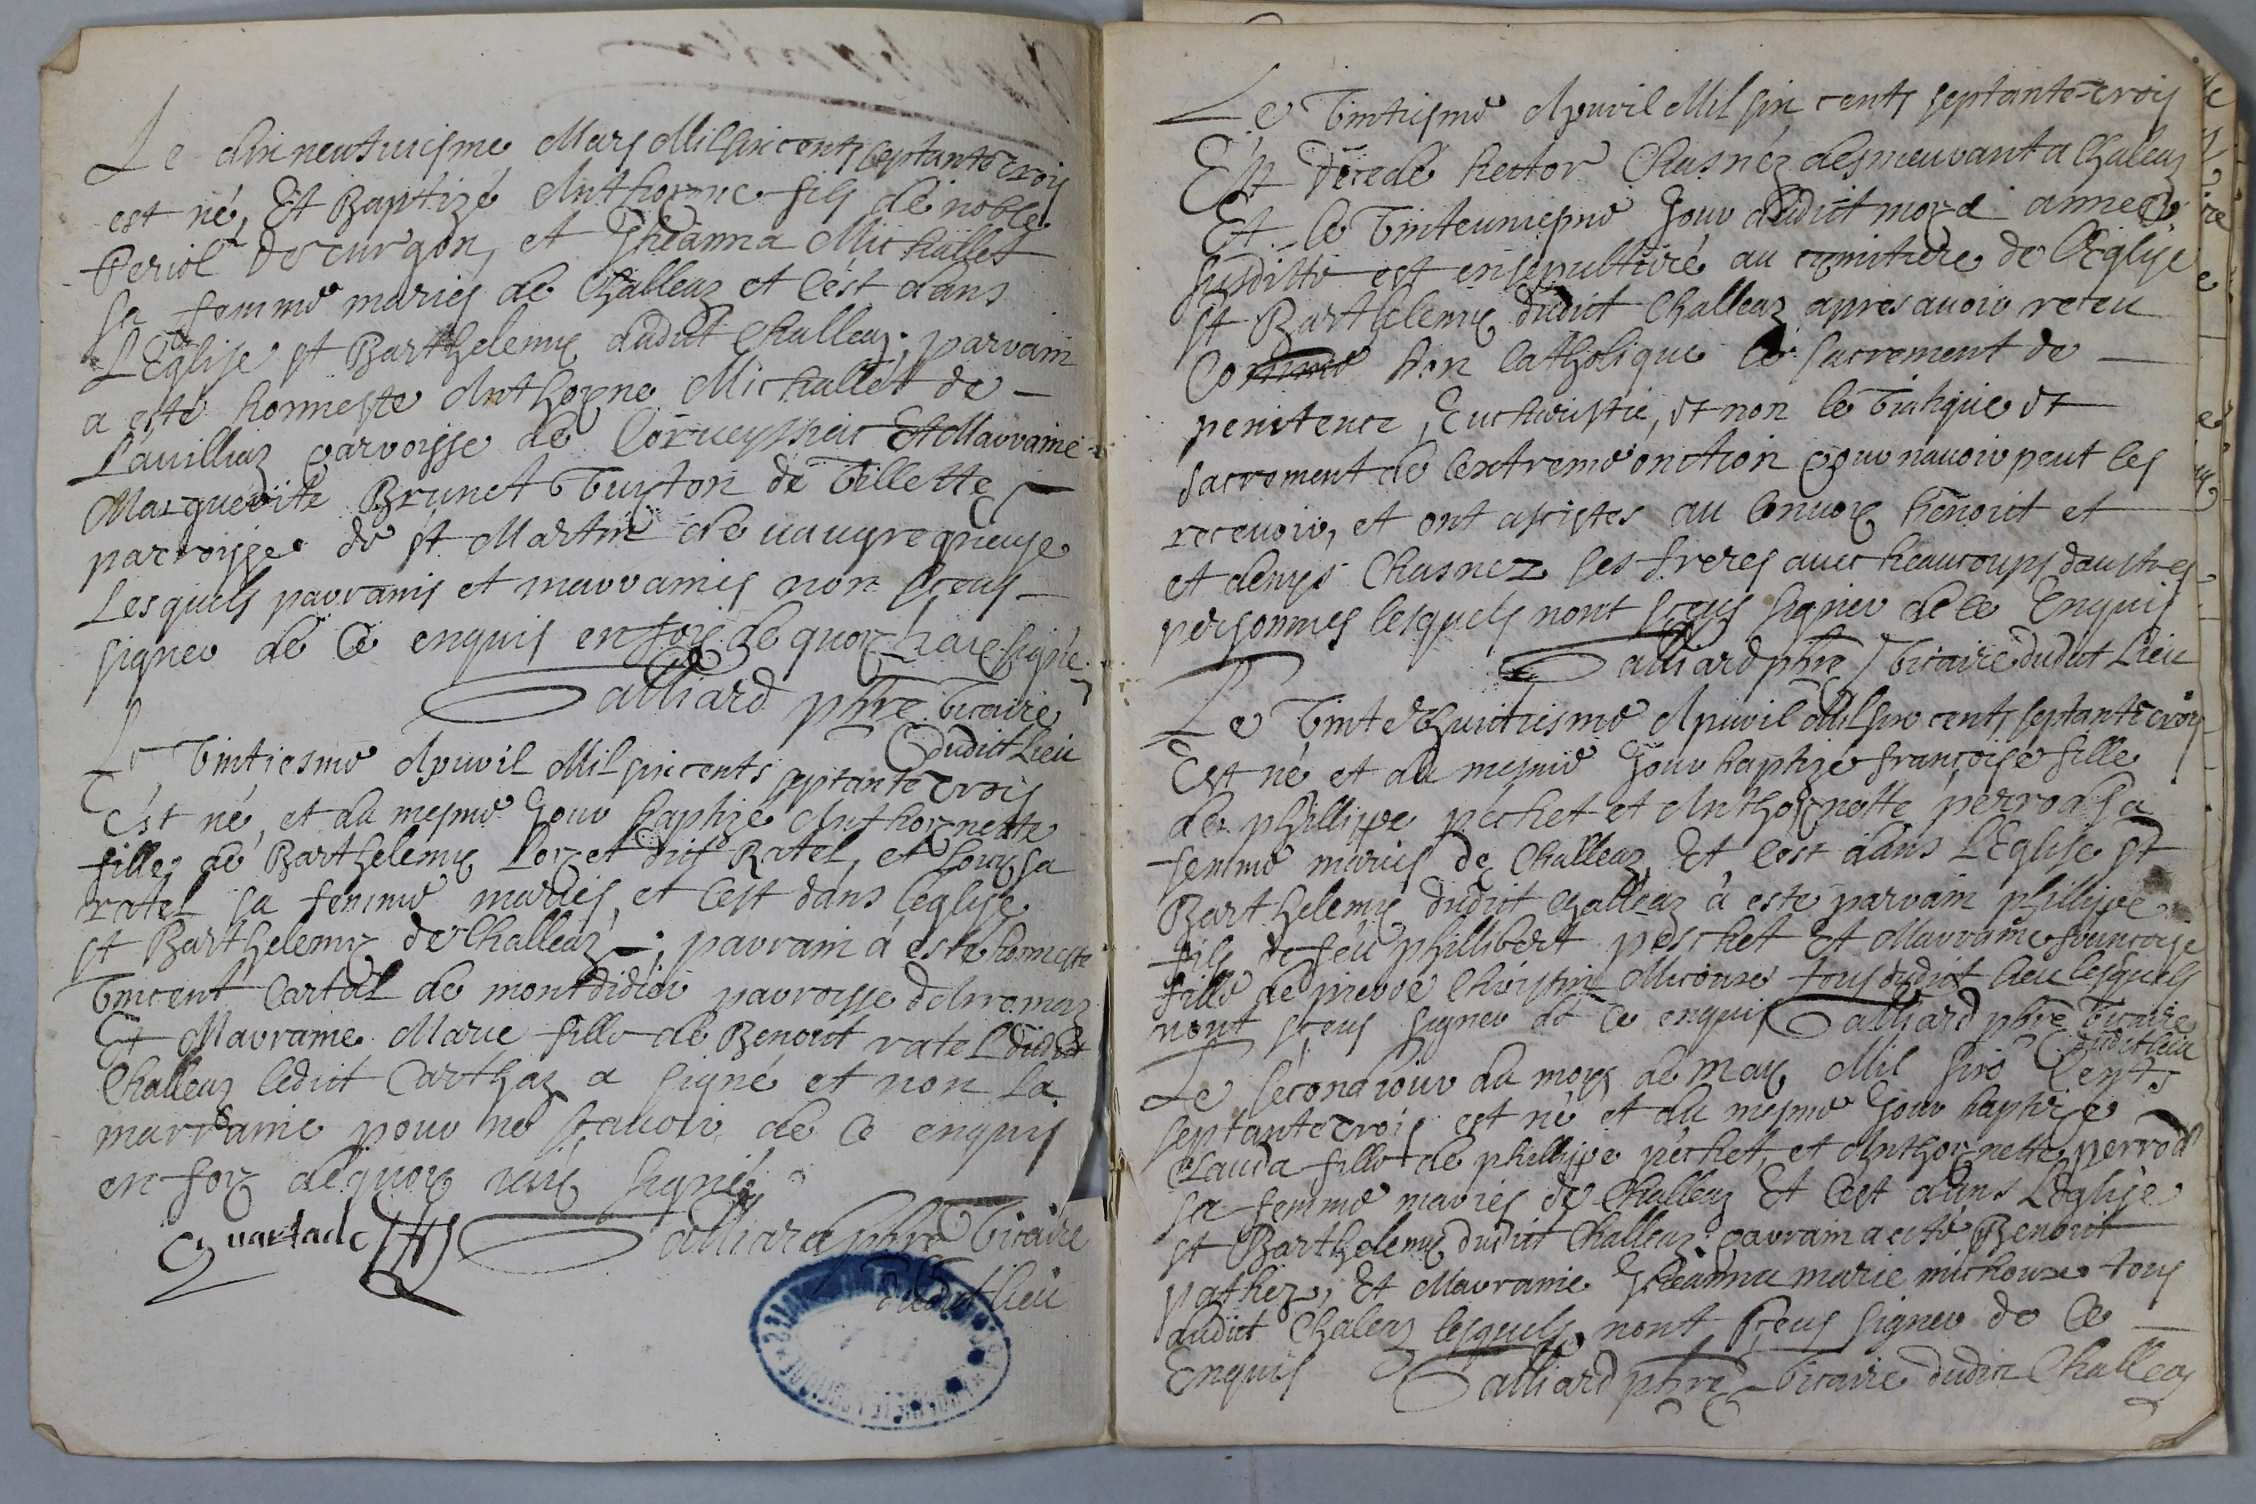 Le dix neufviesme Mars Mil six cents septante trois
est né, Et Baptizé Anthoene fils de noble
Periol de curgon, et Jheanna Michallet
sa femme mariés de Challeaz et c'est dans
L'Eglise st Barthelemy dudict Challeaz; parrain
a esté honneste Anthoene Michallet de
Lavilliaz parroisse de Corveyssiac Et Marraine
Marguerite Brunet de Villette
parroisse de st Martin de vaugregneuse
Lesquels parrains et marraines non sceus
signer de ce enquis en foy de quoy j'aie signé
Galliard pbre vicaire
dudict Lieu
Le vintiesme Apuril Mil six cents septante trois
Est né, et du mesme Jour baptizé Anthoenette
fille de Barthelemy Loret dit Ratel, et Loysa
ratel sa femme mariés, et c'est dans l'eglise
st Barthelemy de Challeaz; parrain a esté honneste
Vincent Cartal de montdidier parroisse d'Aromaz
Et Marraine Marie fille de Benoit ratel dudict
Challeaz ledict Carthaz a signé et non la
marraine pour ne scavoir de ce enquis
en foy de quoy j'aiy signé
Quartad
Galliard pbre vicaire
dudict lieu
Le vintiesme Apuril Mil six cents septante-trois
Est decedé hector Chasnez desmeurant a Chaleaz
Et le vinteuniesme Jour dudict moys et annee
susditte est ensepulturé au cemitiere de l'Eglise
st Barthelemy dudict Challeaz apres avoir receu
Comme bon Catholique le sacrement de
penitence, Eucharistie, et non le viatique et
sacrement de l'extreme onction pour n'avoir peut les
recevoir, et ont assistes au convoy benoit et
et denys Chasnez ses freres avec beaucoups d'austres
personnes lesquels n'ont sceus signer de ce Enquis
Galliard pbre vicaire dudict Lieu
Le vintehuictiesme Apuril Mil six cents septante trois
Est né et du mesme Jour baptizé françoise fille
de phillippe pechet et Anthoenette perrod sa
femme mariés de Challeaz Et c'est dans L'Eglise st
Barthelemy dudict Challeaz a esté parrain phillippe
fils de feu phillibert peschet Et Marraine françoise
fille de pierre Christin Miconne tous dudict lieu lesquels
n'ont sceus signer de ce enquis Galliard pbre vicaire
dudict lieu
Le second iour du moys de may Mil six Cents
septante trois est né et du mesme Jour baptizé
Clauda fille de phillippe pechet, et Anthoenette perrod
sa femme mariés de Challeaz Et c'est dans L'Eglise
st Barthelemy dudict Challeaz parrain a esté Benoit
pathez, Et Marraine Jheanna marie michonne tous
dudict Chaleaz lesquels n'ont sceus signer de ce
Enquis Galliard pbre vicaire dudict Challeaz